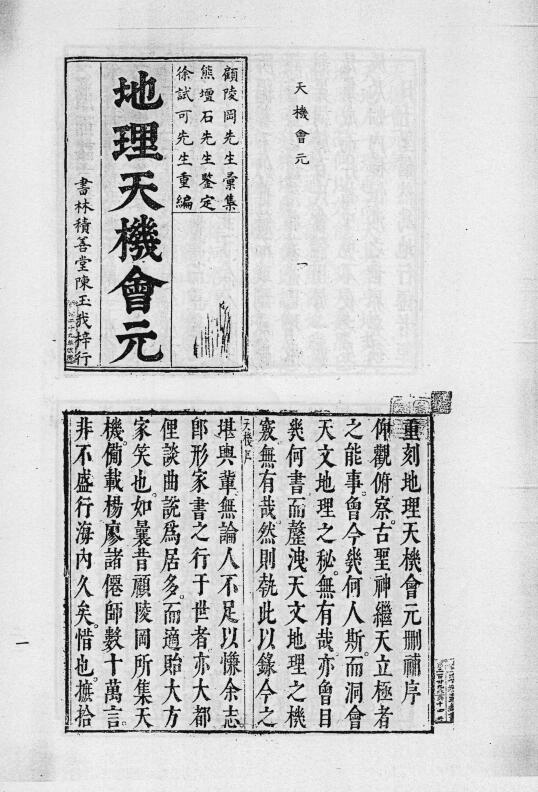 天機會元
一
顧陵岡先生彙集
熊壇石先生鑒定
徐試可先生重編
地理天機會元
書林積善堂陳玉我梓行
重刻地理天機會元刪補序
仰觀俯察。古聖神繼天立極者
之能事。魯今幾何人斯。而洞會
天文地理之秘。無有哉。亦魯目
幾何書而釐洩天文地理之機
竅無有哉。然則執此以錄今之
天機序
堪輿軰無論人不足以慊余志
郎形家書之行于世者亦大都
俚談曲說爲居多。而適貽大方
家笑也。如曩昔顧陵岡所集天
機。備載楊廖諸僊師數十萬言。
非不盛行海內久矣。惜也。摭拾
一